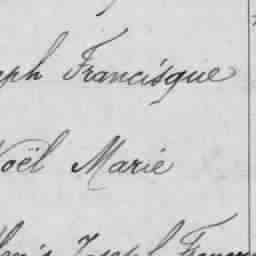 aph Francisque
Noël Marie
Joseph